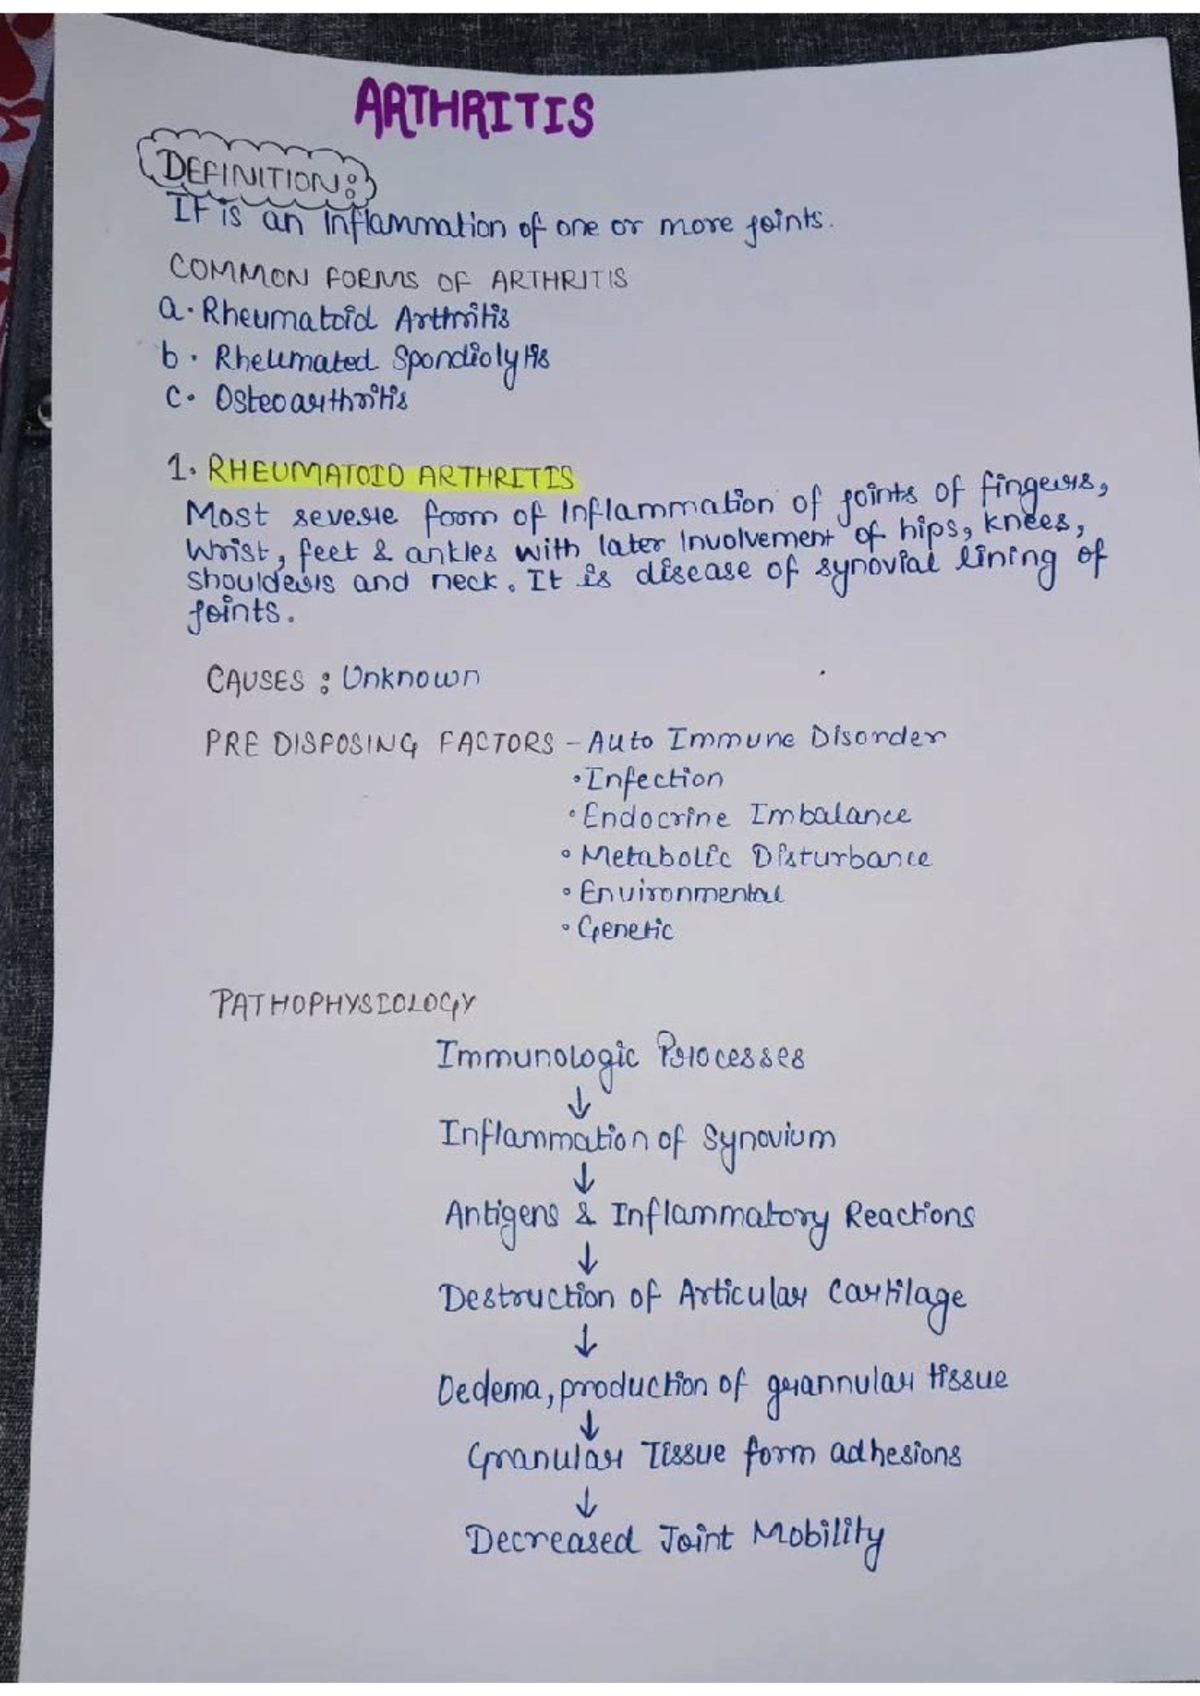 ARTHRITIS
DEFINITION:
It is an Inflammation of one or more joints.
COMMON FORMS OF ARTHRITIS
a. Rheumatoid Arthritis
b. Rheumated Spondiolytis
c. Osteoarthritis
1. RHEUMATOID ARTHRITIS
Most severe form of Inflammation of joints of fingers,
Wrist, feet & ankles with later Involvement of hips, knees,
shoulders and neck. It is disease of synovial lining of
joints.
CAUSES : Unknown
PRE DISPOSING FACTORS - Auto Immune Disorder
• Infection
• Endocrine Imbalance
• Metabolic Disturbance
• Environmental
• Genetic
PATHOPHYSIOLOGY
Immunologic Processes
↓
Inflammation of Synovium
↓
Antigens & Inflammatory Reactions
↓
Destruction of Articular Cartilage
↓
Oedema, production of grannular tissue
↓
Granular Tissue form adhesions
↓
Decreased Joint Mobility